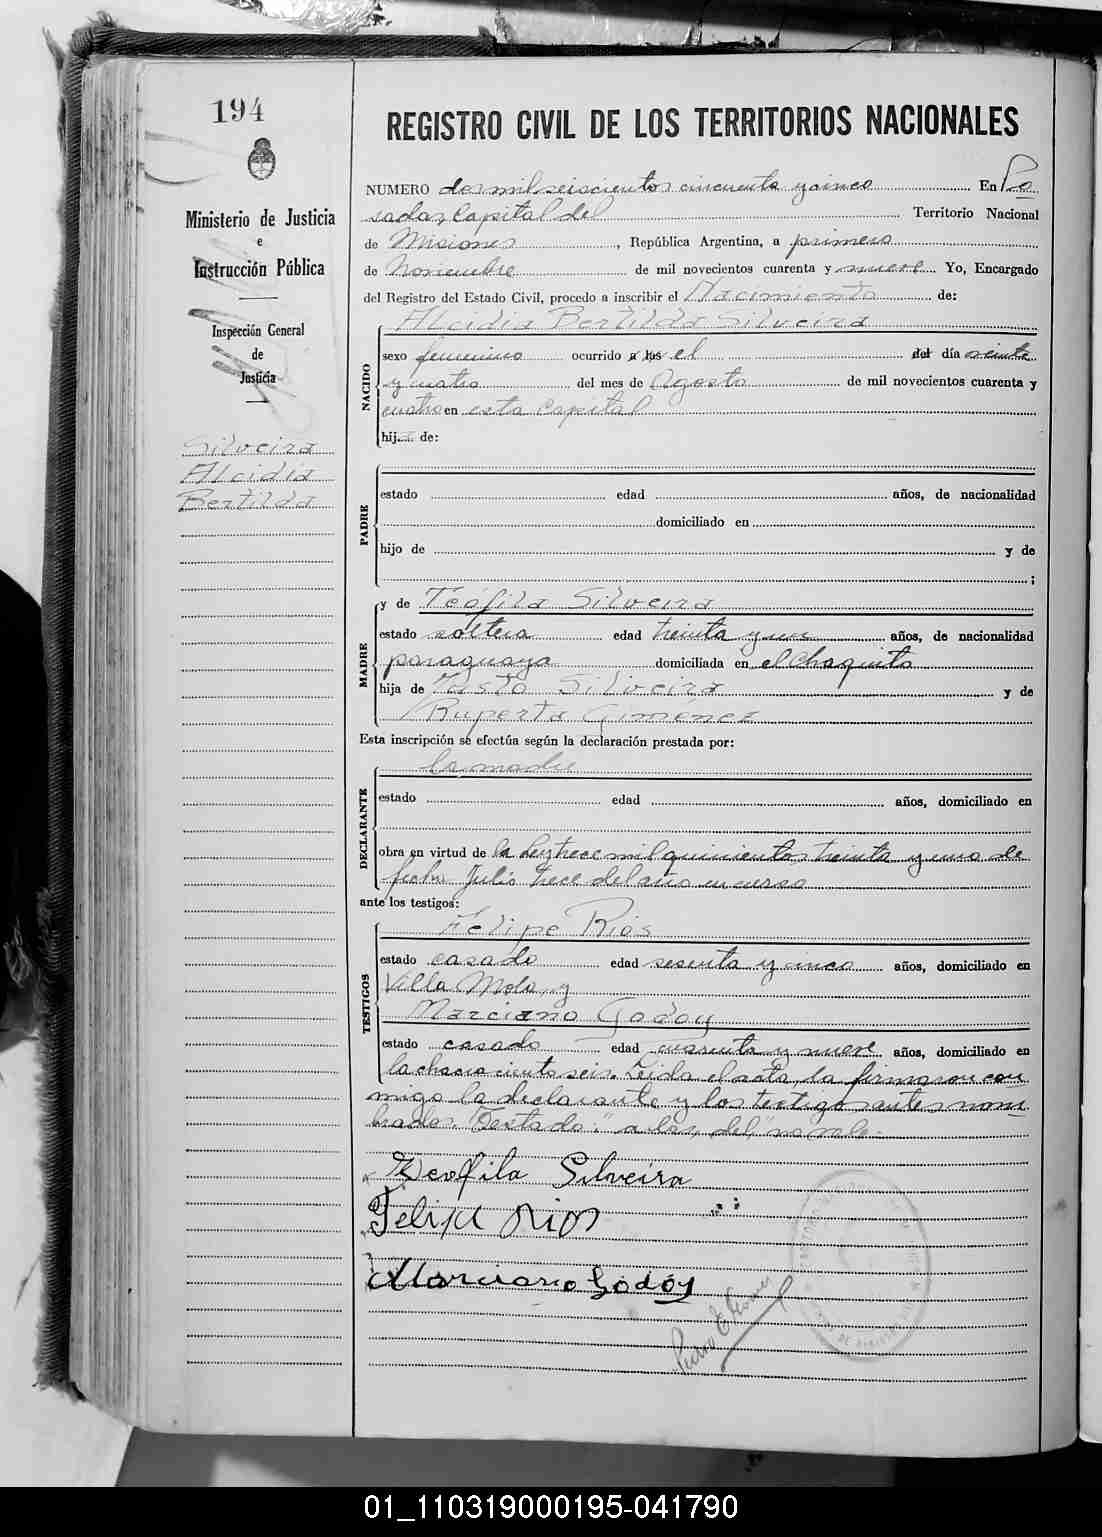 194
Ministerio de Justicia
e
Instrucción Pública
Inspección General
de
Justicia
Silveira
Alcidia
Bertilda
REGISTRO CIVIL DE LOS TERRITORIOS NACIONALES
NUMERO dos mil seiscientos cincuenta y cinco En Po
sadas Capital del Territorio Nacional
de Misiones, República Argentina, a primero
de Noviembre de mil novecientos cuarenta y nueve Yo, Encargado
del Registro del Estado Civil, procedo a inscribir el Nacimiento de:
NACIDO
Alcidia Bertilda Silveira
sexo femenino ocurrido a las el del día veinte
y cuatro del mes de Agosto de mil novecientos cuarenta y
cuatro en esta Capital
hija de:
PADRE
estado edad años, de nacionalidad
domiciliado en
hijo de y de
;
MADRE
y de Teófila Silveira
estado soltera edad treinta y un años, de nacionalidad
paraguaya domiciliada en el Chaquito
hija de Silveira y de
Ruperta Giménez
Esta inscripción se efectúa según la declaración prestada por:
DECLARANTE
la madre
estado edad años, domiciliado en
obra en virtud de la Ley trece mil quinientos treinta y uno de
fecha Julio trece del año en curso
ante los testigos:
TESTIGOS
Felipe Rios
estado casado edad sesenta y cinco años, domiciliado en
Villa Mola, y
Marciano Godoy
estado casado edad cuarenta y nueve años, domiciliado en
la chacra ciento seis. Leida el acta, la firmaron con
migo la declarante y los testigos antes nom
brados. Testado: "a las, del," no vale.
Teofila Silveira
Felipe Rios
Marciano Godoy
01_110319000195-041790